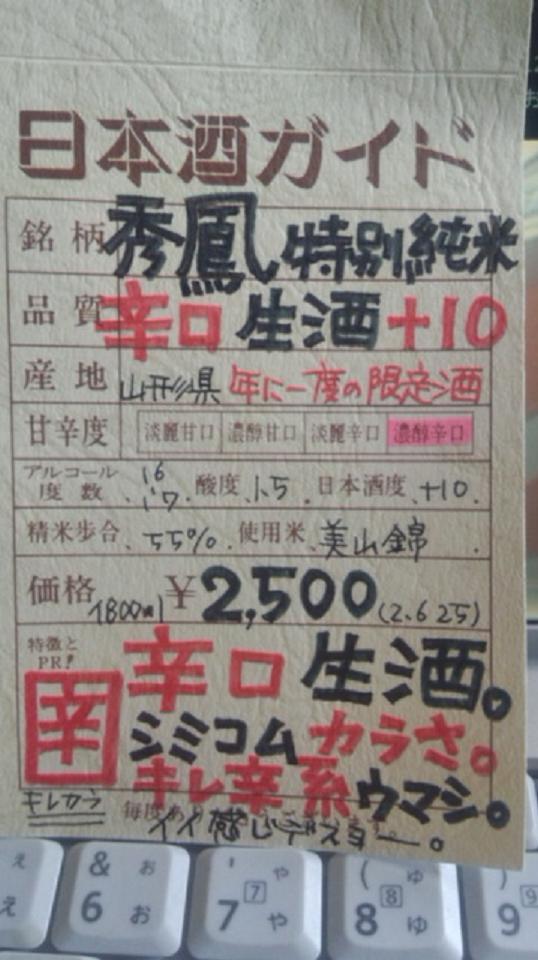 日本酒ガイド
銘柄 秀鳳 特別純米
品質 辛口 生酒 +10
産地 山形県 年に一度の限定酒
甘辛度 淡麗甘口 濃醇甘口 淡麗辛口 濃醇辛口
アルコール度数 16.17. 酸度 1.5 日本酒度 +10.
精米歩合 55%. 使用米 美山錦.
価格 1800ml ¥2,500(2.625)
特徴とPR! 辛口 生酒。
辛 シミコム カラさ。
キレ辛系 ウマシ。
キレカラ イイ感じデスヨー。
& お 6 お
' や 7 7 や
( ゆ 8 8 ゆ
9 9
え え